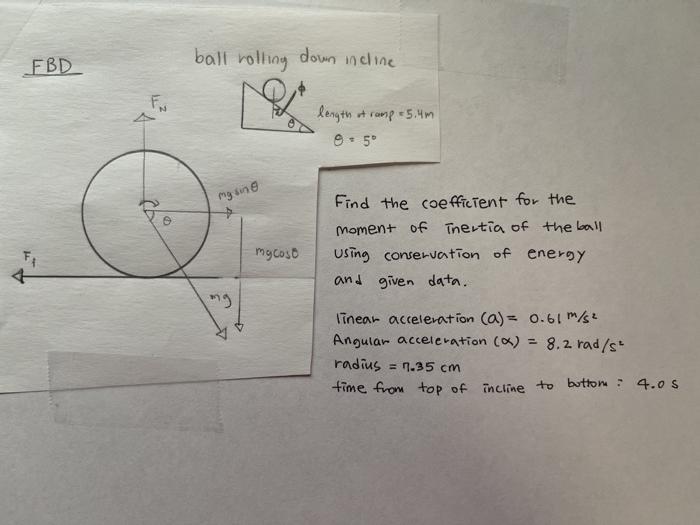 FBD
ball rolling down incline
ϕ
θ
length of ramp = 5.4m
θ = 5°
F_N
mg sinθ
θ
mg cosθ
F_f
mg
Find the coefficient for the
moment of inertia of the ball
using conservation of energy
and given data.
linear acceleration (a) = 0.61 m/s²
Angular acceleration (α) = 8.2 rad/s²
radius = 7.35 cm
time from top of incline to bottom : 4.0 s